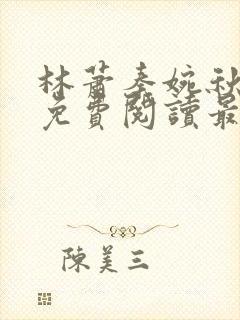 林蕭秦婉秋
免費閱讀最
陳美三